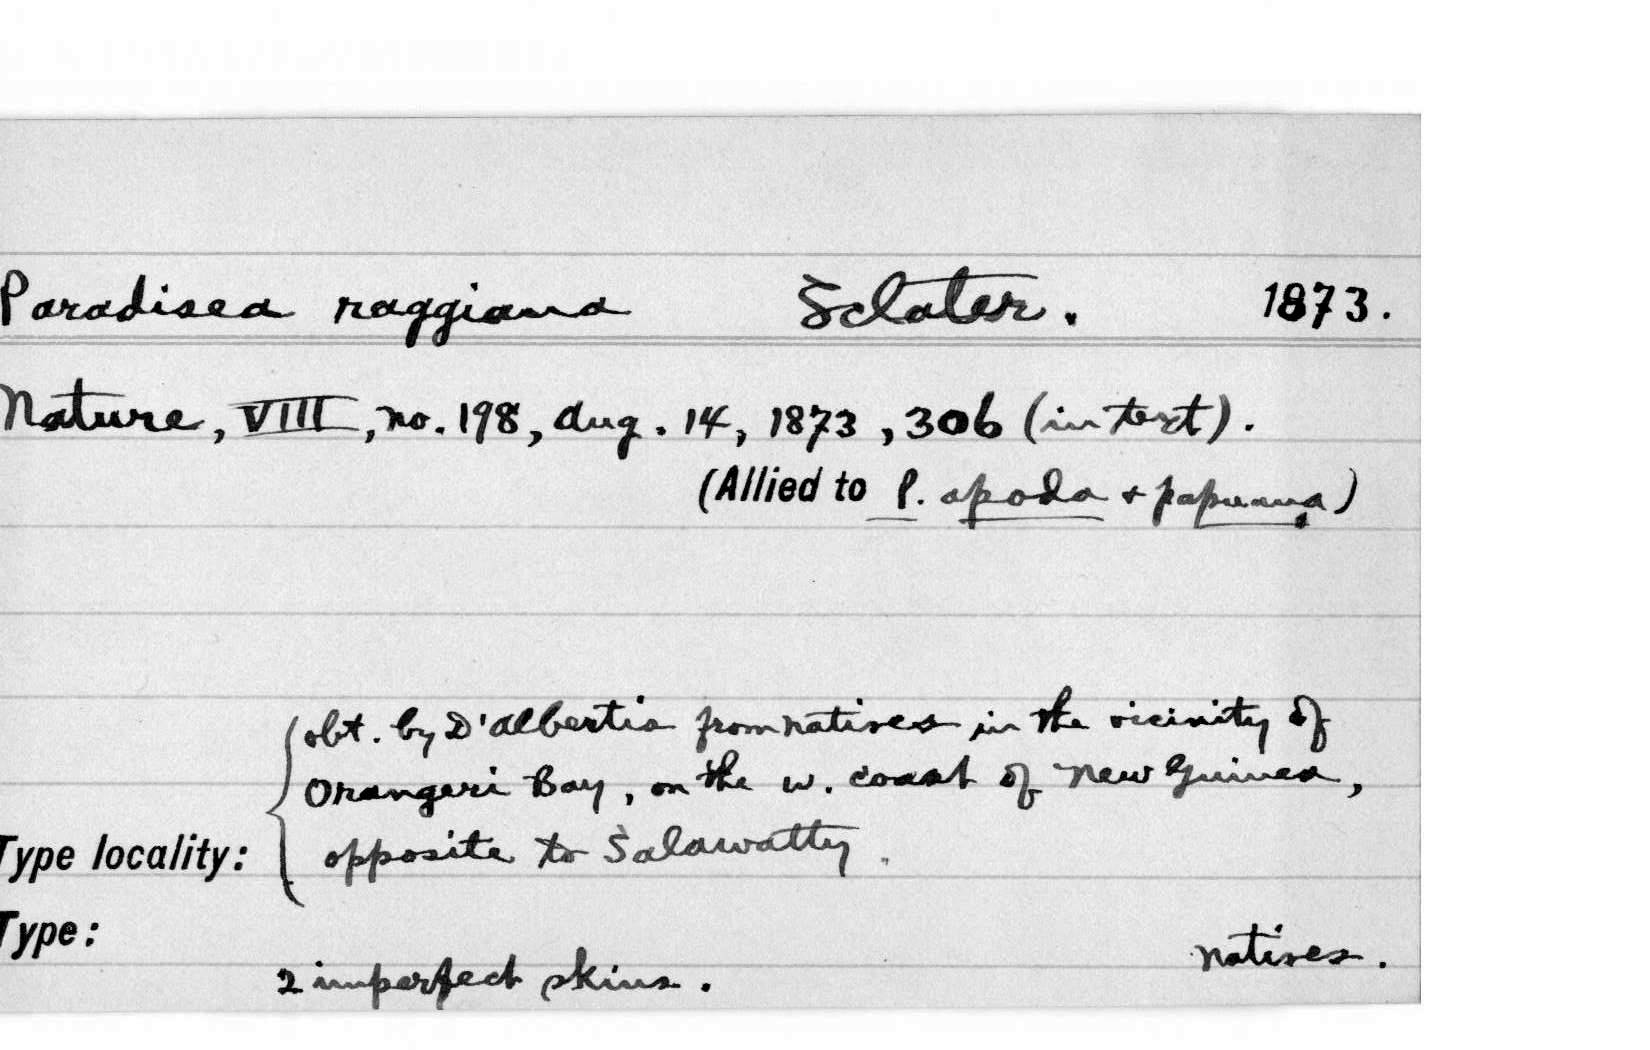 Paradisea raggiana Sclater. 1873.
Nature, VIII, no. 198, Aug. 14, 1873, 306 (in text).
(Allied to P. apoda + papuana)
obt. by D'Albertis from natives in the vicinity of
Orangeri Bay, on the w. coast of New Guinea,
opposite to Salawatty.
Type locality:
Type:
natives.
2 imperfect skins.